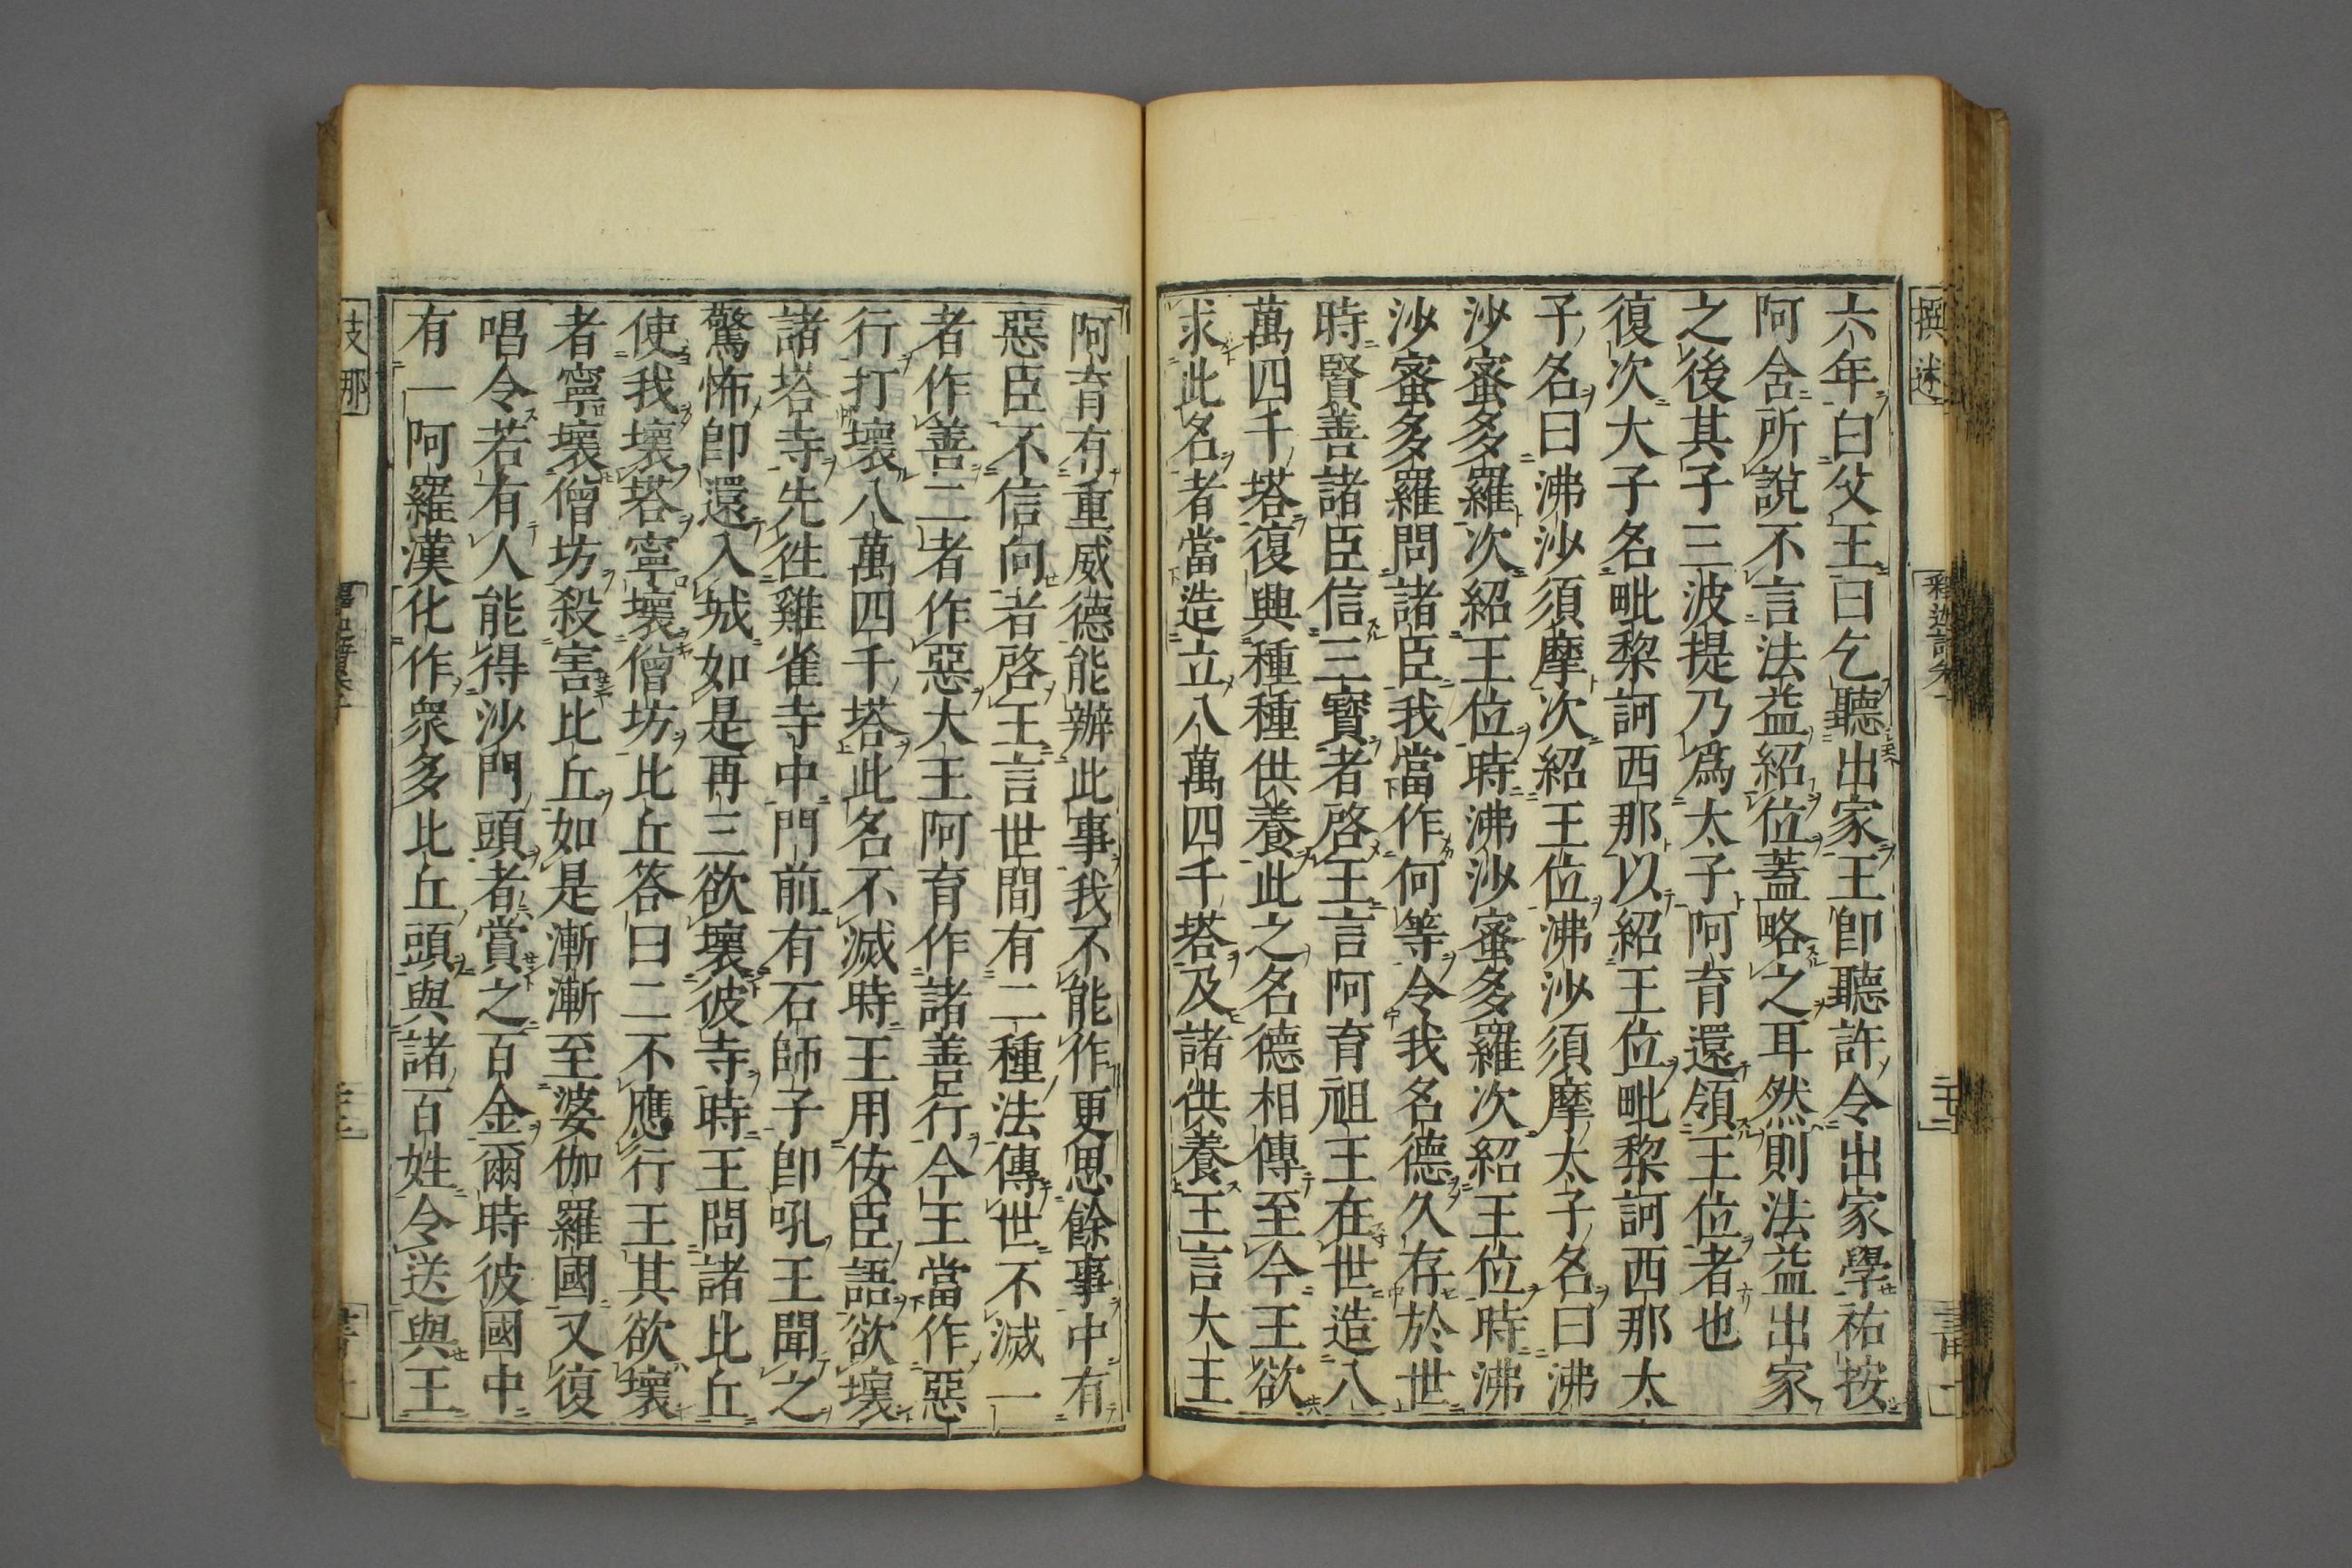 六年白父王曰乞聽出家王即聽許令出家學祐按
阿含所說不言法益紹位蓋略之耳然則法益出家
之後其子三波提乃爲太子阿育還領王位者也
復次大子名毗黎訶西那以紹王位毗黎訶西那太
子名曰沸沙須摩次紹王位沸沙須摩太子名曰沸
沙蜜多羅次紹王位時沸沙蜜多羅次紹王位時沸
沙蜜多羅問諸臣我當作何等令我名德久存於世
時賢善諸臣信三寶者啓王言阿育祖王在世造八
萬四千塔復興種種供養此之名德相傳至今王欲
求此名者當造立八萬四千塔及諸供養王言大王
阿育有重威德能辦此事我不能作更思餘事中有
惡臣不信向者啓王言世間有二種法傳世不滅一
者作善二者作惡大王阿育作諸善行今王當作惡
行打壞八萬四千塔此名不滅時王用佞臣語欲壞
諸塔寺先往雞雀寺中門前有石師子即吼王聞之
驚怖即還入城如是再三欲壞彼寺時王問諸比丘
使我壞塔寧壞僧坊比丘答曰二不應行王其欲壞
者寧壞僧坊殺害比丘如是漸漸至婆伽羅國又復
唱令若有人能得沙門頭者賞之百金爾時彼國中
有一阿羅漢化作衆多比丘頭與諸百姓令送與王